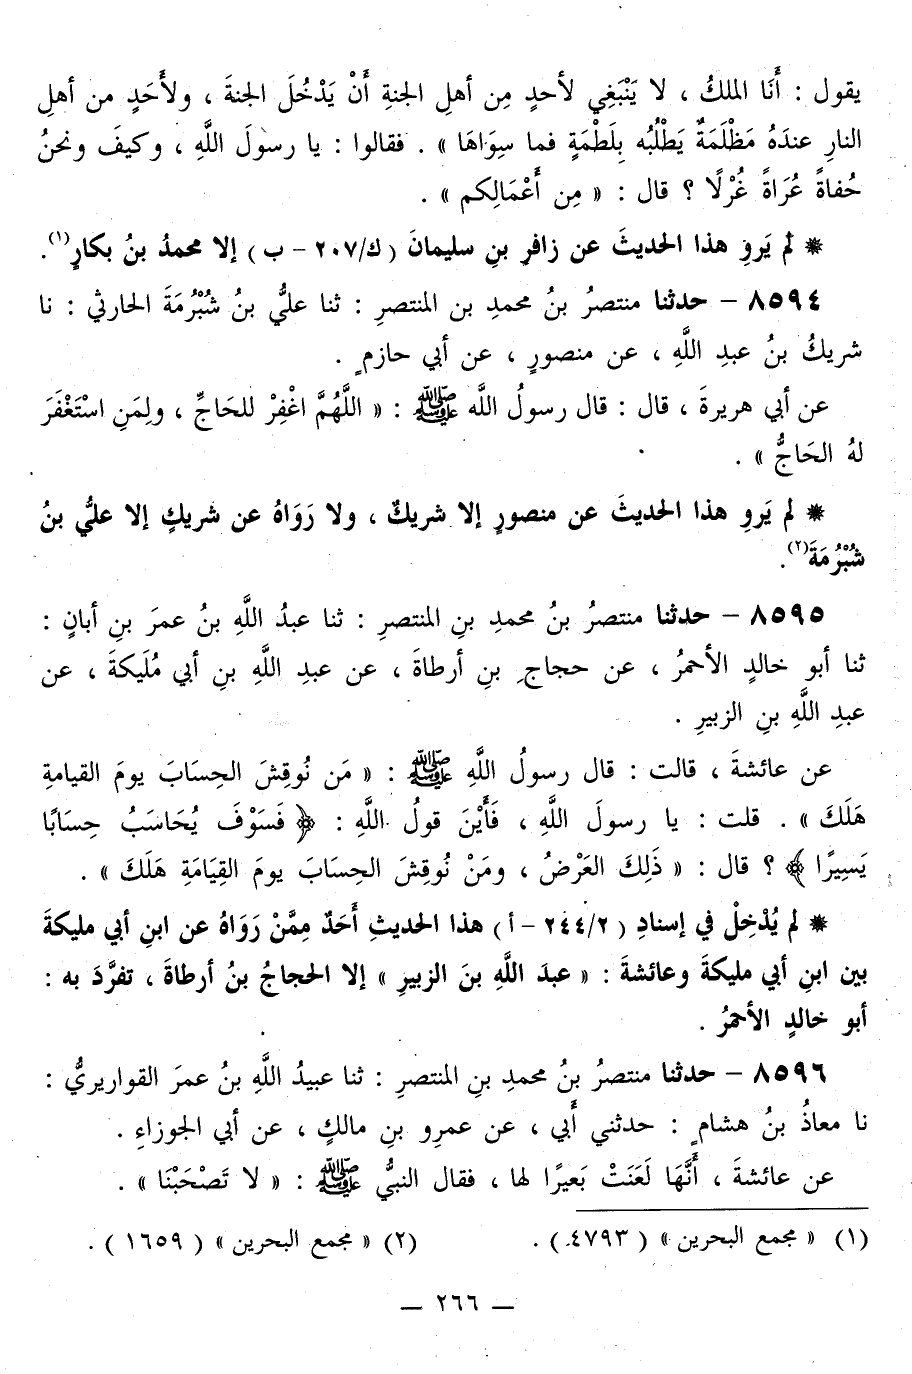 يقول : أَنَا الملكُ ، لا يَنْبَغِي لأحدٍ مِن أهلِ الجنةِ أَنْ يَدْخُلَ الجنةَ ، ولأَحَدٍ من أهلِ
النارِ عندَهُ مَظْلَمَةٌ يَطْلُبُه بِلَطْمَةٍ فما سِوَاهَا » . فقالوا : يا رسولَ اللَّهِ ، وكيفَ ونحنُ
حُفاةً عُرَاةً غُرْلًا ؟ قال : « مِن أَعْمَالِكم » .
* لم يَروِ هذا الحديثَ عن زافرِ بنِ سليمانَ ( ك/٢٠٧ – ب ) إلا محمدُ بنُ بكارٍ(١).
٨٥٩٤ – حدثنا منتصرُ بنُ محمدِ بن المنتصرِ : ثنا عليُّ بنُ شُبْرُمَةَ الحارثي : نا
شريكُ بنُ عبدِ اللَّهِ ، عن منصورٍ ، عن أبي حازمٍ .
عن أبي هريرةَ ، قال : قال رسولُ اللَّه ﷺ : « اللَّهُمَّ اغْفِرْ للحَاجِّ ، ولِمَنِ اسْتَغْفَرَ
لهُ الحَاجُّ » .
* لم يَروِ هذا الحديثَ عن منصورٍ إلا شريكٌ ، ولا رَوَاهُ عن شريكٍ إلا عليُّ بنُ
شُبْرُمَةَ(٢).
٨٥٩٥ – حدثنا منتصرُ بنُ محمدِ بنِ المنتصرِ : ثنا عبدُ اللَّهِ بنُ عمرَ بنِ أبانٍ :
ثنا أبو خالدٍ الأحمرُ ، عن حجاجِ بنِ أرطاةَ ، عن عبدِ اللَّهِ بنِ أبي مُلَيكةَ ، عن
عبدِ اللَّهِ بنِ الزبيرِ .
عن عائشةَ ، قالت : قال رسولُ اللَّهِ ﷺ : « مَن نُوقِشَ الحِسَابَ يومَ القيامةِ
هَلَكَ » . قلت : يا رسولَ اللَّهِ ، فَأَيْنَ قولُ اللَّهِ : ﴿ فَسَوْفَ يُحَاسَبُ حِسَابًا
يَسِيرًا ﴾ ؟ قال : « ذَلِكَ العَرْضُ ، ومَنْ نُوقِشَ الحِسَابَ يومَ القِيَامَةِ هَلَكَ » .
* لم يُدْخِلْ في إسنادِ ( ٢٤٤/٢ – أ ) هذا الحديثِ أَحَدٌ مِمَّنْ رَوَاهُ عن ابنِ أبي مليكةَ
بين ابنِ أبي مليكةَ وعائشةَ : « عبدَ اللَّهِ بنَ الزبيرِ » إلا الحجاجُ بنُ أرطاةَ ، تفرَّدَ به :
أبو خالدٍ الأحمرُ .
٨٥٩٦ – حدثنا منتصرُ بنُ محمدِ بنِ المنتصرِ : ثنا عبيدُ اللَّهِ بنُ عمرَ القواريريُّ :
نا معاذُ بنُ هشامٍ : حدثني أَبي ، عن عمرِو بنِ مالكٍ ، عن أبي الجوزاءِ .
عن عائشةَ ، أَنَّهَا لَعَنَتْ بَعيرًا لها ، فقال النبيُّ ﷺ : « لا تَصْحَبْنَا » .
(١) « مجمع البحرين » ( ٤٧٩٣ ) . (٢) « مجمع البحرين » ( ١٦٥٩ ) .
— ٢٦٦ —